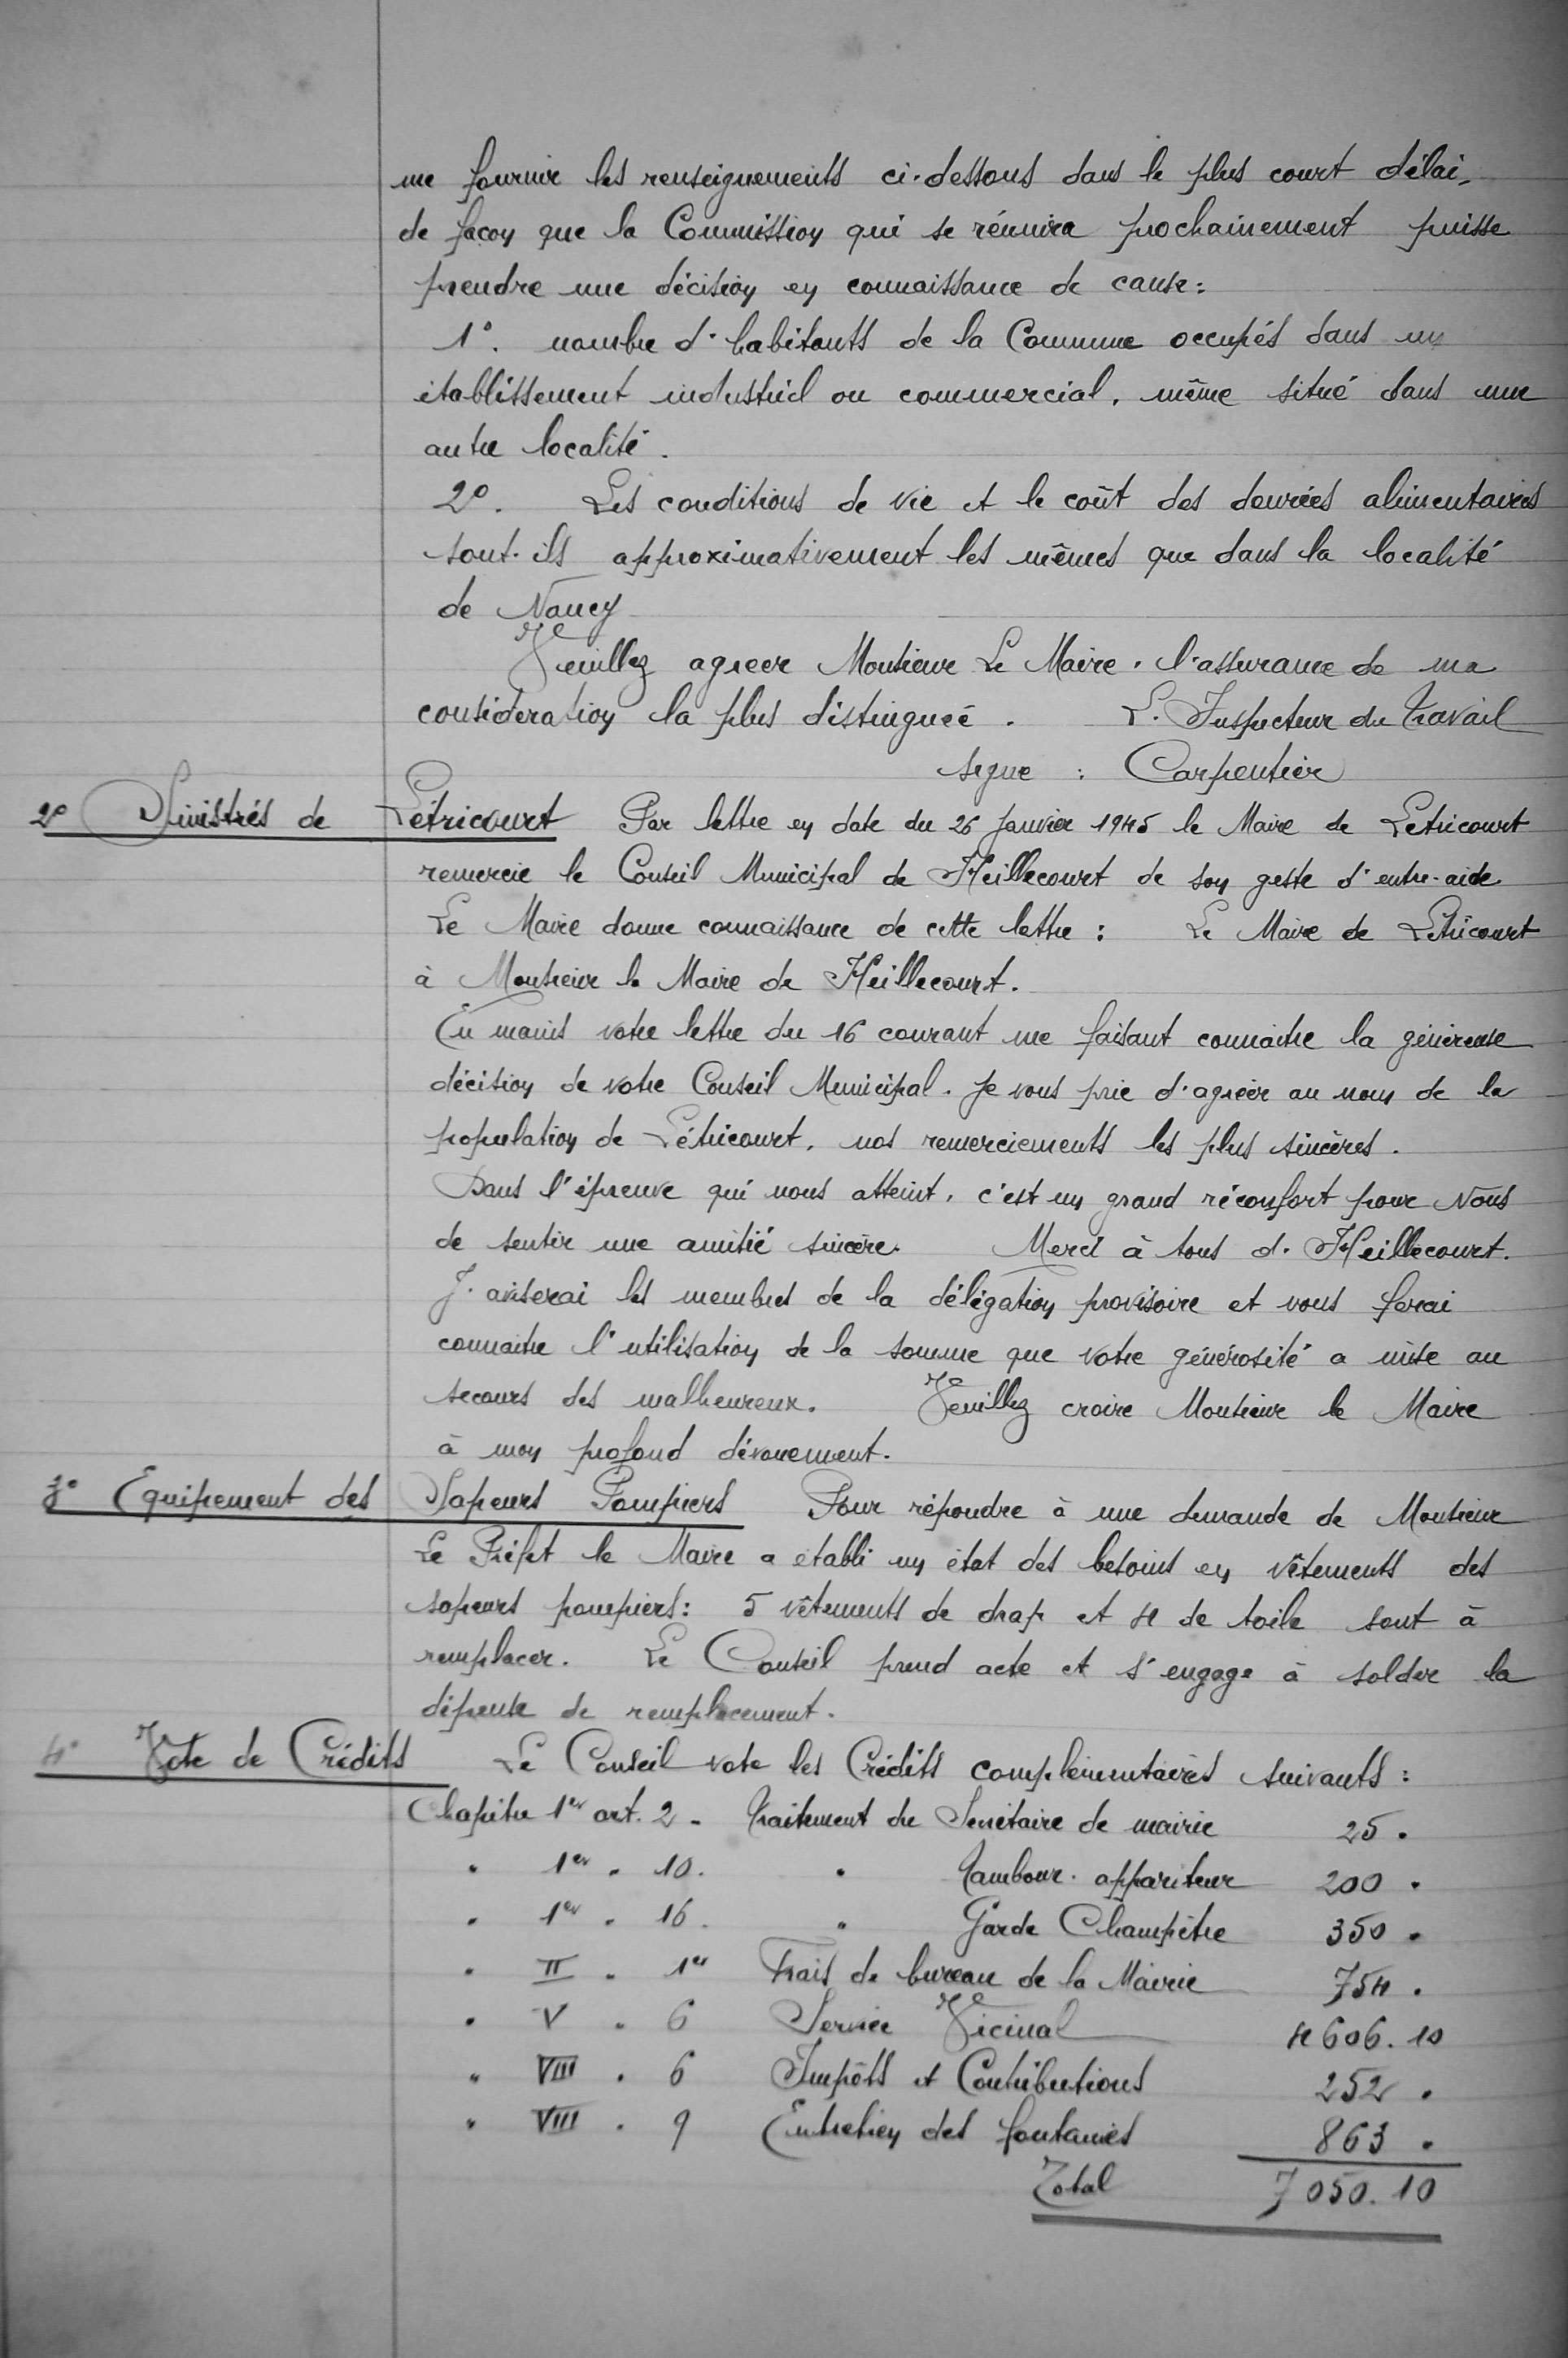 me fournir les renseignements ci-dessous dans le plus court délai,
de façon que la Commission qui se réunira prochainement puisse
prendre une décision en connaissance de cause :
1°. nombre d'habitants de la Commune occupés dans un
établissement industriel ou commercial, même situé dans une
autre localité.
2°. Les conditions de vie et le coût des denrées alimentaires
sont-ils approximativement les mêmes que dans la localité
de Nancy
Veuillez agréer Monsieur Le Maire, l'assurance de ma
considération la plus distinguée. L'Inspecteur du Travail
signé : Carpentier
2° Sinistrés de Létricourt Par lettre en date du 26 Janvier 1945 le Maire de Létricourt
remercie le Conseil Municipal de Heillecourt de son geste d'entre-aide
Le Maire donne connaissance de cette lettre : Le Maire de Létricourt
à Monsieur le Maire de Heillecourt.
En mains votre lettre du 16 courant me faisant connaître la généreuse
décision de votre Conseil Municipal. Je vous prie d'agréer au nom de la
population de Létricourt, nos remerciements les plus sincères.
Dans l'épreuve qui nous atteint, c'est un grand réconfort pour Nous
de sentir une amitié sincère. Merci à tous d. Heillecourt.
J'aviserai les membres de la délégation provisoire et vous ferai
connaître l'utilisation de la somme que votre générosité a mise au
secours des malheureux. Veuillez croire Monsieur le Maire
à mon profond dévouement.
3° Equipement des Sapeurs Pompiers Pour répondre à une demande de Monsieur
Le Préfet le Maire a établi un état des besoins en vêtements des
sapeurs pompiers : 5 vêtements de drap et 4 de toile sont à
remplacer. Le Conseil prend acte et s'engage à solder la
dépense de remplacement.
4° Vote de Crédits Le Conseil vote les Crédits complémentaires suivants :
Chapitre 1er art. 2 - Traitement du Secrétaire de mairie 25 .
" 1er " 10. " Tambour-appariteur 200 .
" 1er " 16. " Garde Champêtre 350 .
" II " 1er Frais de bureau de la Mairie 754 .
" V " 6 Service Vicinal 4 606.10
" VIII " 6 Impôts et Contributions 252 .
" VIII " 9 Entretien des fontaines 863 .
Total 7 050.10